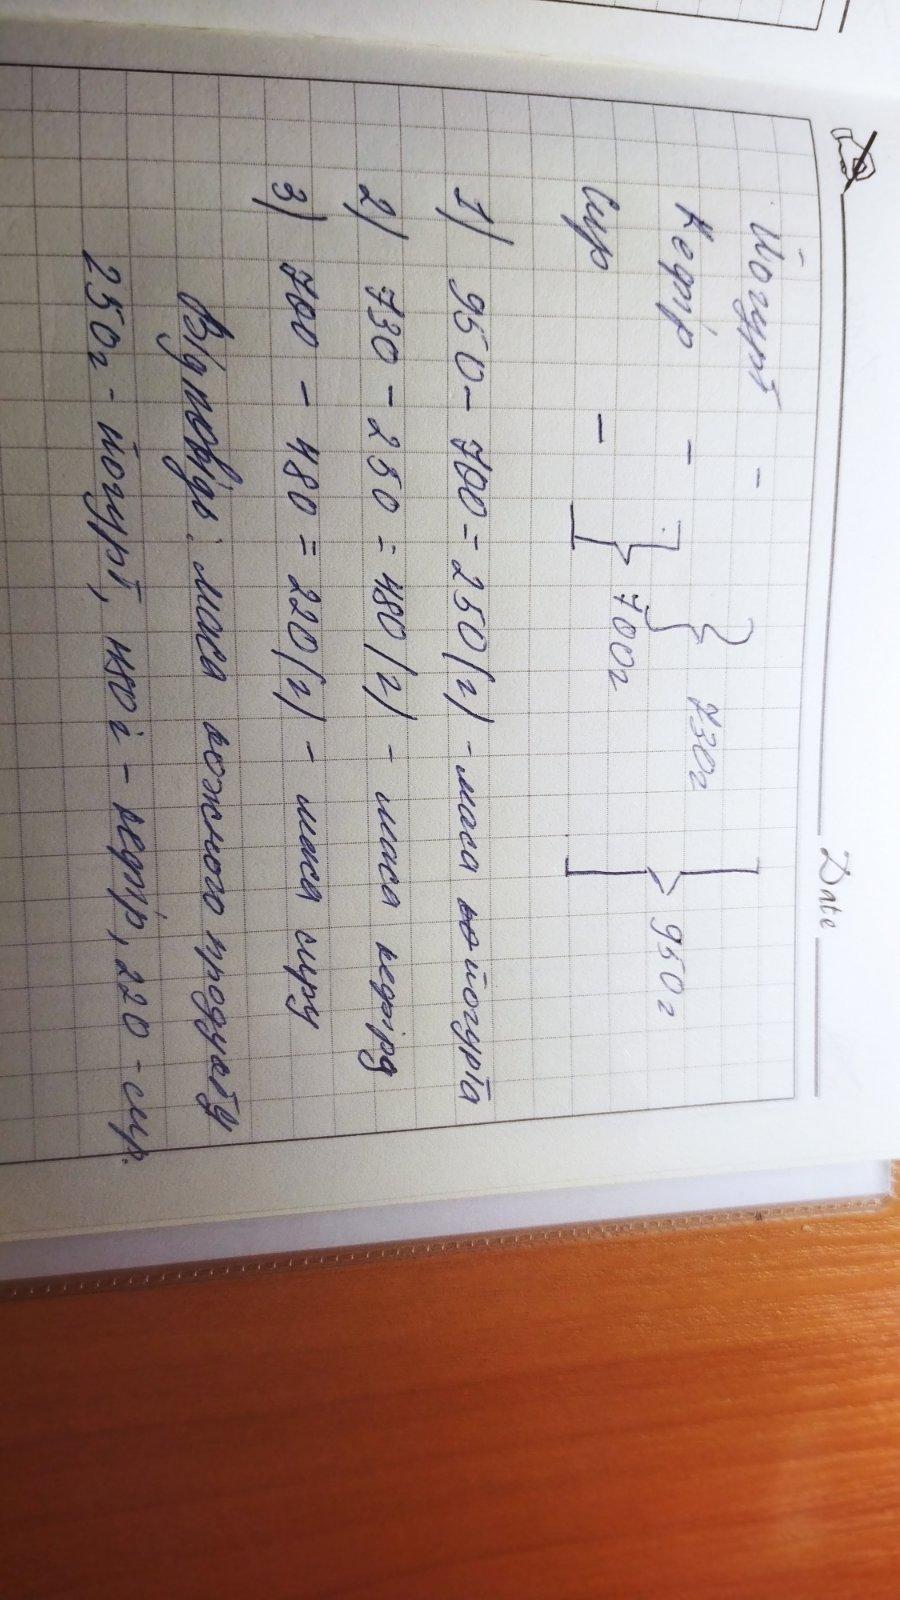 Date
Йогурт -
Кефір - } 730г
Сир - } 700г } 950г
1) 950 - 700 = 250 (г) - маса йогурта
2) 730 - 250 = 480 (г) - маса кефіру
3) 700 - 480 = 220 (г) - маса сиру
Відповідь: маса кожного продукту
250г - йогурт, 480г - кефір, 220 - сир.